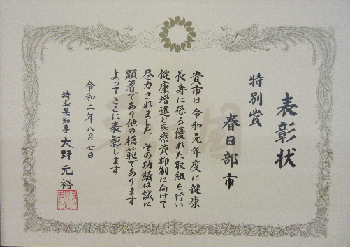 表彰状
特別賞
春日部市
貴市は令和元年度に健康
長寿に係る優れた取組を行い
健康増進と医療費抑制に向けて
尽力されました その功績は誠に
顕著であり他の模範であります
よってここに表彰します
令和二年八月七日
埼玉県知事 大野元裕